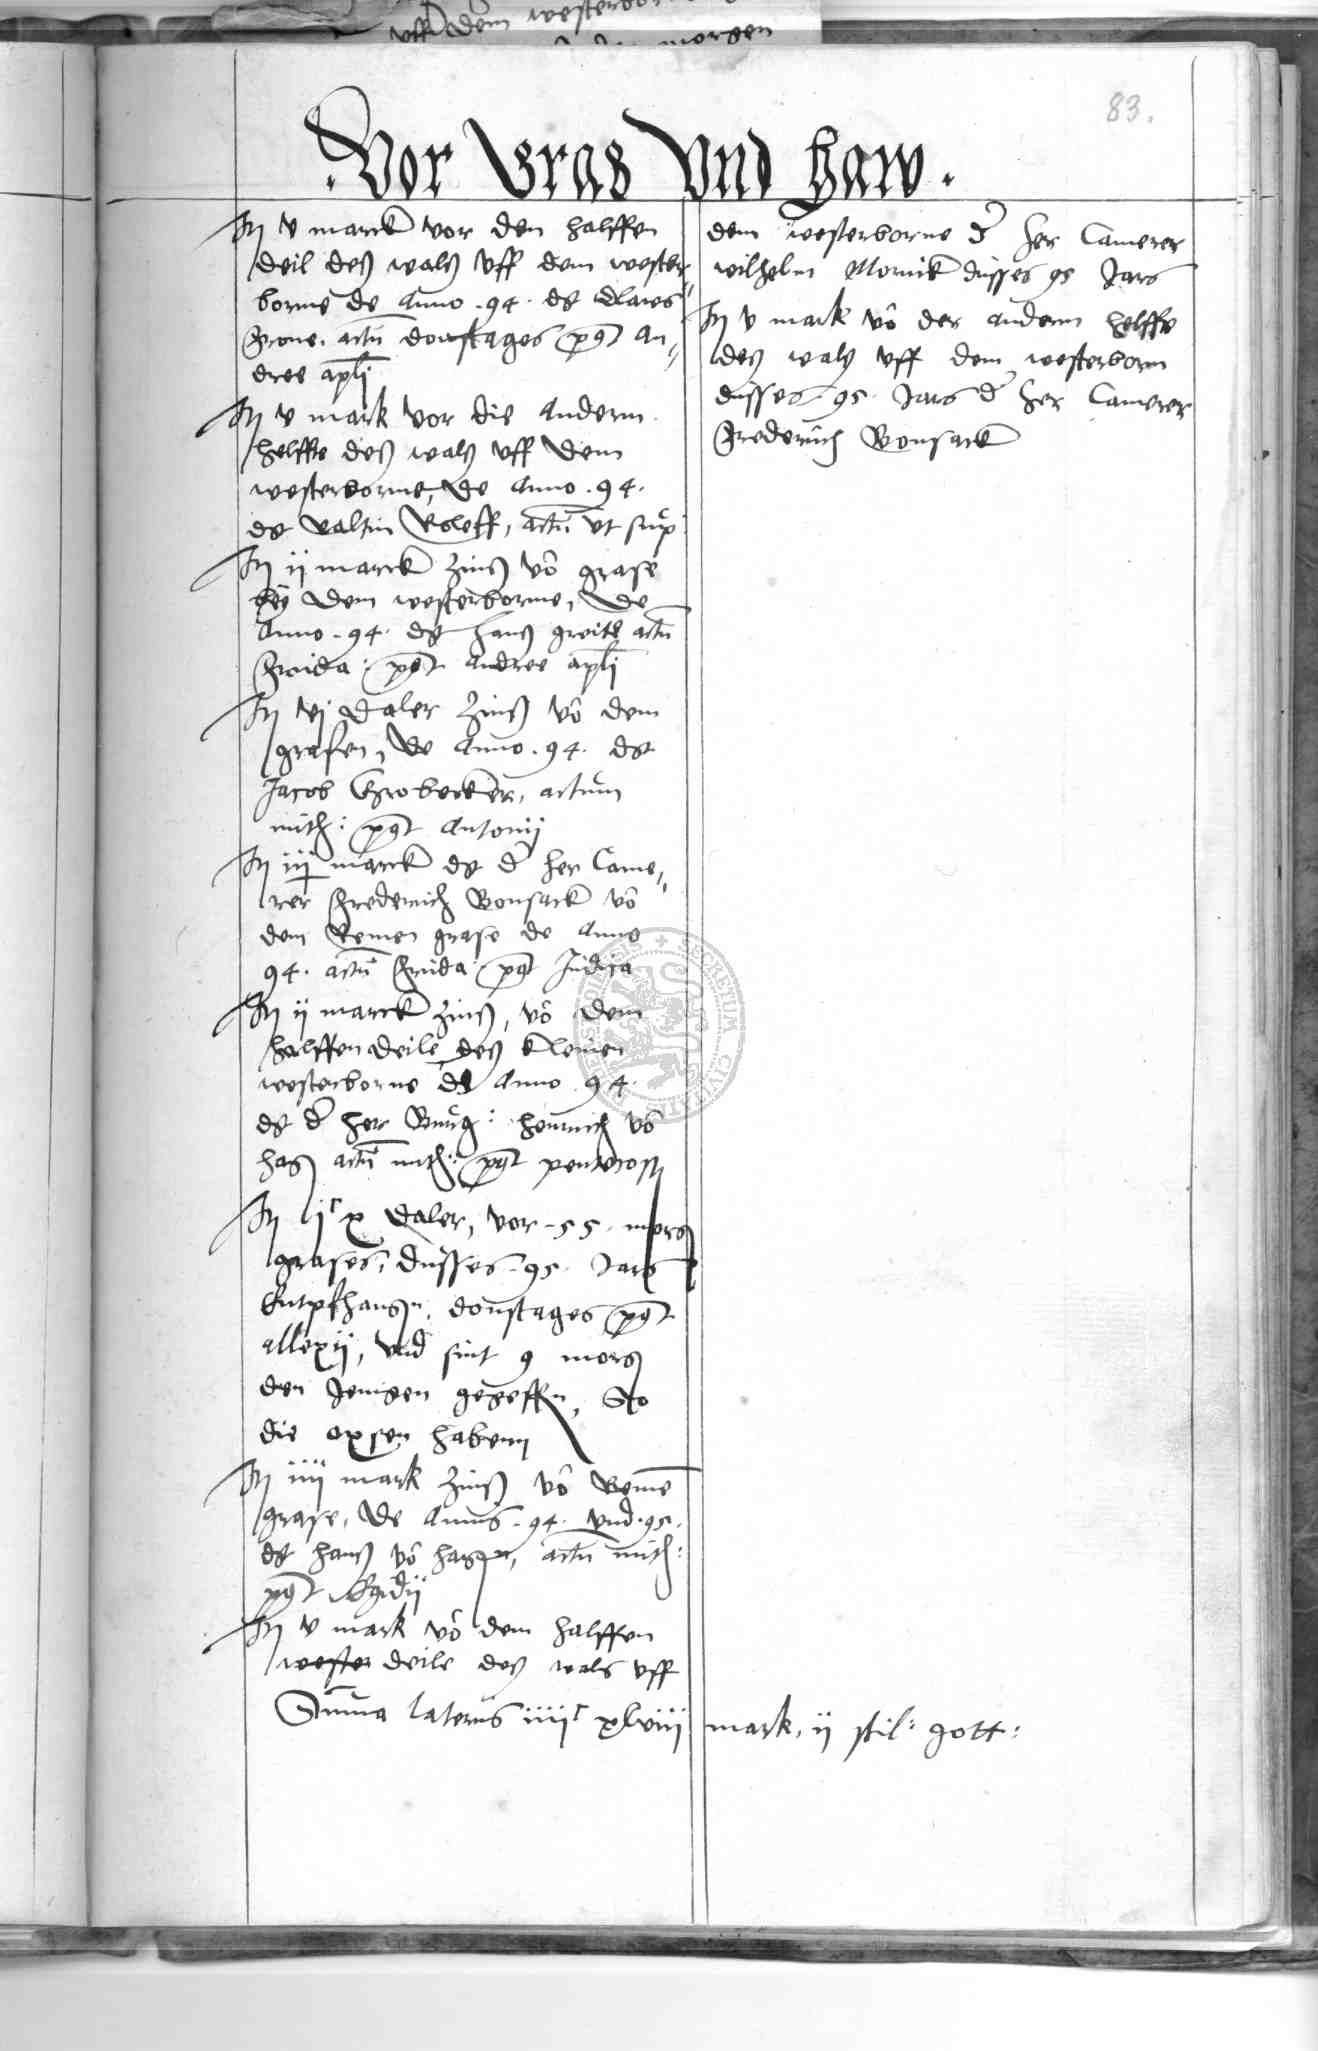 uff dem westerbor
morgen
83.
.Vor Gras Vnd Haw.
It v marck vor den halffen
deil des wals vff dem wester„
borne de Anno .94. dt Claws
Frone. actu donstages post An„
dree apli
It v mark vor die Andern
helffte des wals vff dem
westerborne, de Anno .94.
dt valtin Roleff, actu vt sup
It ii marck zins vo grase
bey dem westerborne, de
Anno .94. dt Hans greite actu
Frida: post Andree apli
It vj daler zins vo dem
grasen, de Anno .94. dt
Jacob Grobecker, actum
mith: post Antonij
It iij marck dt d her Came„
rer Frederich Bonsack vo
dem Remen grase de Anno
94. actu Frida post Judica
It ii marck zins, vo dem
halffen deile des kleinen
westerborns de Anno .94.
dt d her Burg: Heinrich vo
Hagn actu mith: post pentecost
It ijc x daler, vor .55. morg
grases, dusses .95. Jars
donstages post
Allexij, vnd sint 9 morg
den Jenigen gegeffn, So
die oxsen habenn
It iiij mark zins vo Reme
grase, De Annis .94. vnd .95.
dt Hans vo Hagen, actu mith:
post Egidij
It v mark vo dem halffen
wester deile des wals vff
dem westerborne d her Camerer
wilhelm Mornik dusses 95 Jars
It v mark vo der andern helffte
des wals vff dem westerborn
dusses .95. Jars d her Camerer
Frederich Bonsack
Suma lateris iiiic xlviii mark, ii schil: gott:
SECRETUM CIVITATIS